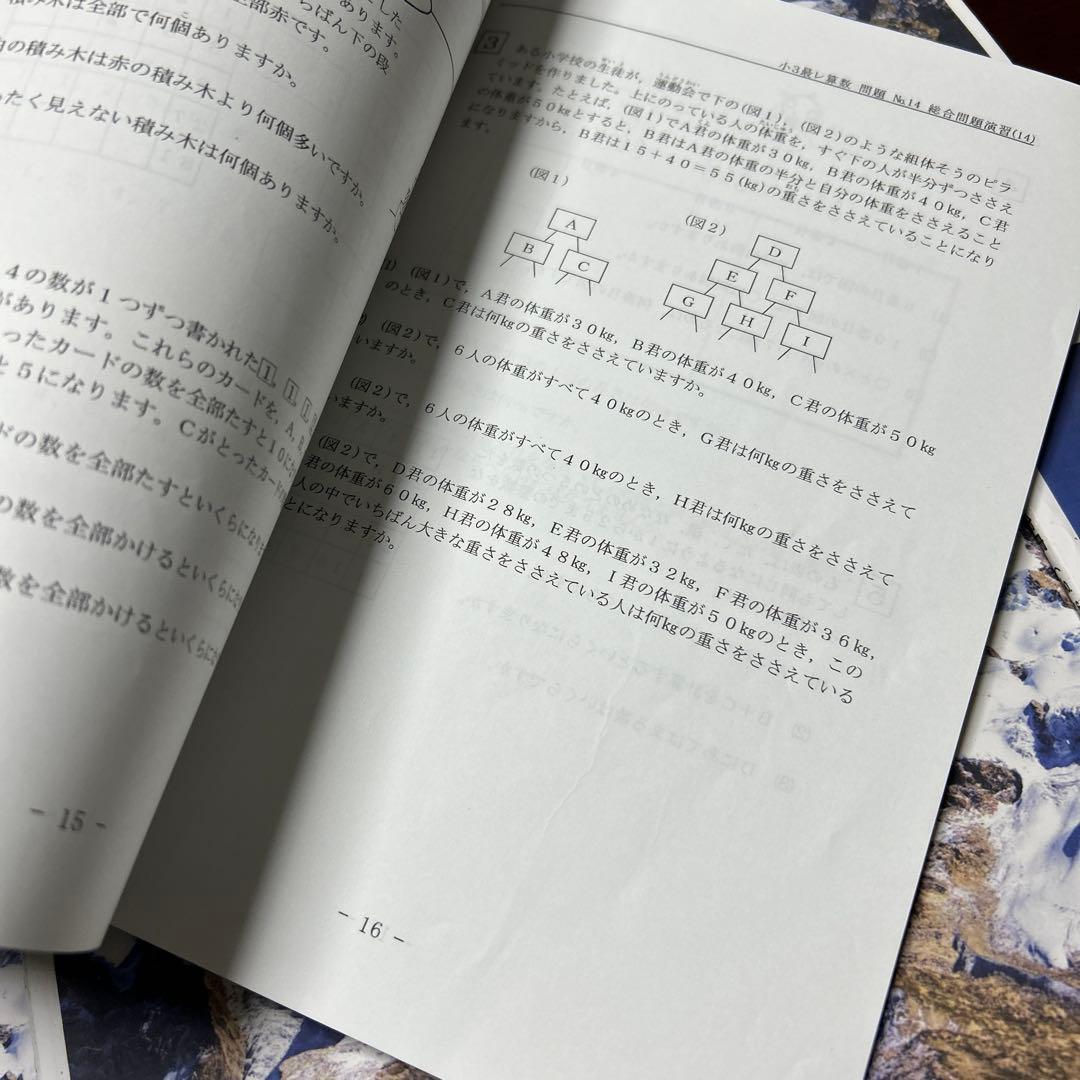 した
あります。
全部赤です。
ちばん下の段
積み木は全部で何個ありますか。
の積み木は赤の積み木より何個多いですか。
ったく見えない積み木は何個ありますか。
4の数が1つずつ書かれた1, 1, 1
があります。これらのカードを, A, B,
ったカードの数を全部たすと10にな
と5になります。Cがとったカード
ドの数を全部たすといくらになりま
の数を全部かけるといくらにな
数を全部かけるといくらにな
- 15 -
小3最レ算数 問題 No.14 総合問題演習(14)
3 ある小学校の生徒が, 運動会で下の(図1), (図2)のような組体そうのピラ
ミッドを作りました。上にのっている人の体重を, すぐ下の人が半分ずつささえ
ています。たとえば, (図1)でA君の体重が30kg, B君の体重が40kg, C君
の体重が50kgとすると, B君はA君の体重の半分と自分の体重をささえること
になりますから, B君は15+40=55(kg)の重さをささえていることになり
ます。
(図1)
A
B
C
(図2)
D
E
F
G
H
I
(図1)で, A君の体重が30kg, B君の体重が40kg, C君の体重が50kg
のとき, C君は何kgの重さをささえていますか。
(図2)で, 6人の体重がすべて40kgのとき, G君は何kgの重さをささえて
いますか。
(図2)で, 6人の体重がすべて40kgのとき, H君は何kgの重さをささえて
いますか。
(図2)で, D君の体重が28kg, E君の体重が32kg, F君の体重が36kg,
君の体重が60kg, H君の体重が48kg, I君の体重が50kgのとき, この
人の中でいちばん大きな重さをささえている人は何kgの重さをささえている
とになりますか。
- 16 -